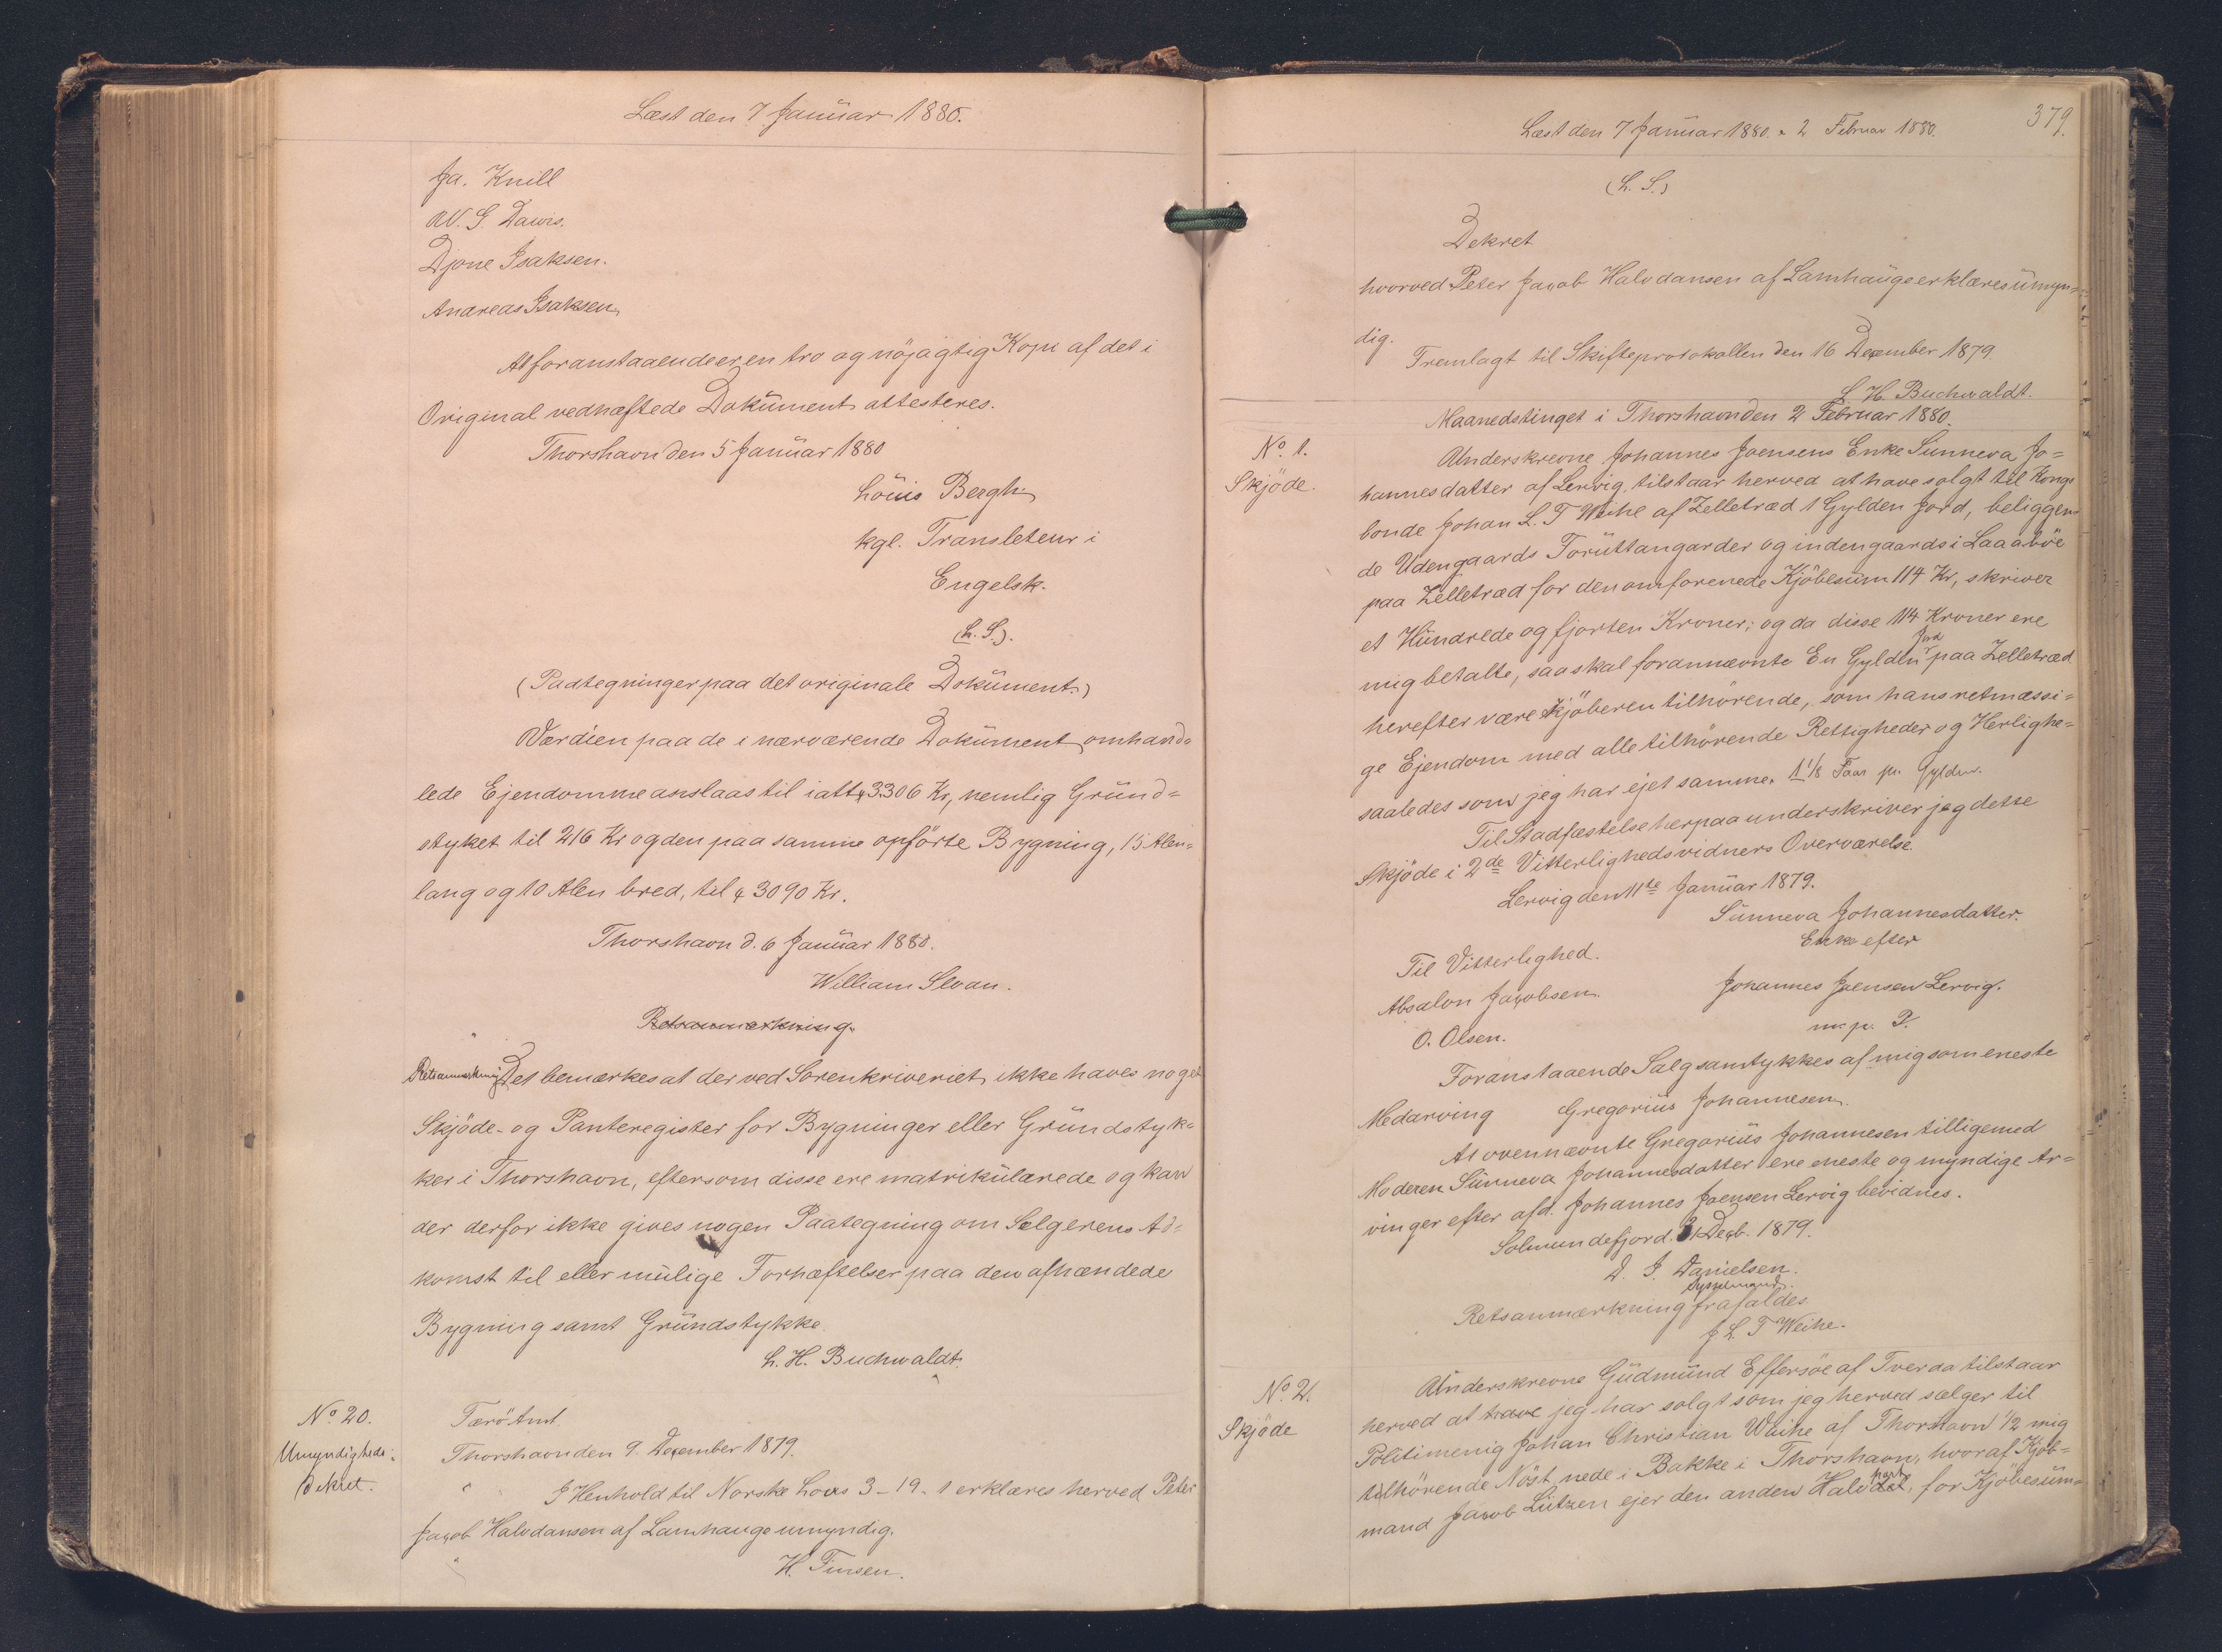 Læst den 7 Januar 1880.
Ja. Knill
W. G. Dawis.
Djone Isaksen.
Andreas Isaksen
At foranstaaende er en tro og nöjagtig Kopi af det i
Original vedhæftede Dokument attesteres.
Thorshavn den 5 Januar 1880
Louis Bergh
kgl. Transleteur i
Engelsk.
(L. S.).
(Paategninger paa det originale Dokument)
Værdien paa de i nærværende Dokument omhand=
lede Ejendomme anslaas til i alt 3306 Kr, nemlig Grund=
stykket til 216 Kr og den paa samme opförte Bygning, 15 Alen
lang og 10 Alen bred, til 3090 Kr.
Thorshavn d. 6 Januar 1880.
William Sloan.
Retsanmærkning.
Retsanmærkning Det bemærkes at der ved Sorenskriveriet ikke haves noget
Skjöde- og Panteregister for Bygninger eller Grundstyk=
ker i Thorshavn, eftersom disse ere matrikulærede og kan
der derfor ikke gives nogen Paategning om Sælgerens Ad=
komst til eller mulige Forhæftelser paa den afhændede
Bygning samt Grundstykke.
L. H. Buchwaldt.
No. 20.
Umyndigheds-
dekret.
Færö Amt
Thorshavn den 9. December 1879.
I Henhold til Norske Lovs 3-19-1 erklæres herved Peter
Jacob Halvdansen af Lamhauge umyndig.
H. Finsen.
379.
Læst den 7 Januar 1880. & 2 Februar 1880.
(L. S.)
Dekret
hvorved Peter Jacob Halvdansen af Lamhauge erklæres umyn=
dig.
Fremlagt til Skifteprotokollen den 16 December 1879.
L H. Buchwaldt.
Maanedstinget i Thorshavn den 2 Februar 1880.
No. 1.
Skjöde.
Underskrevne Johannes Joensens Enke Sunneva Jo=
hannesdatter af Lervig, tilstaar herved at have solgt til Kongs
bonde Johan L. F Weihe af Zelletræd 1 Gylden Jord, beliggen
de Udengaards Foruttangarder og indengaards i Laaaböe
paa Zelletræd for den omforenede Kjöbesum 114 Kr, skriver
et Hundrede og fjorten Kroner; og da disse 114 Kroner ere
mig betalte, saa skal forannævnte En Gylden Jord paa Zelletræd
herefter være Kjöberen tilhörende, som hans retmæssi=
ge Ejendom med alle tilhörende Rettigheder og Herlighe=
saaledes som jeg har ejet samme. 1 1/8 Faar pr. Gylden.
Til Stadfæstelse herpaa underskriver jeg dette
Skjöde i 2de Vitterlighedsvidners Overværelse.
Lervig den 11te Januar 1879.
Sunneva Johannesdatter.
Enke efter
Til Vitterlighed.
Absalon Jacobsen.
Johannes Joensen Lervig.
O. Olsen.
m. p. P.
Foranstaaende Salg samtykkes af mig som eneste
Medarving Gregorius Johannesen.
At ovennævnte Gregorius Johannesen tilligemed
Moderen Sunneva Johannesdatter ere eneste og myndige Ar=
vinger efter afd. Johannes Joensen Lervig bevidnes.
Solmundefjord. 31 Decb. 1879.
D. J. Danielsen.
Sysselmand.
Retsanmærkning frafaldes
J. L. F Weihe.
No. 2.
Skjöde
Underskrevne Gudmund Effersöe af Tveraa tilstaar
herved at have jeg har solgt som jeg herved sælger til
Politimenig Johan Christian Waihe af Thorshavn 1/2 mig
tilhörende Nöst nede i Bakke i Thorshavn, hvoraf Kjöb=
mand Jacob Lützen ejer den anden Halvpart, for Kjöbesum=